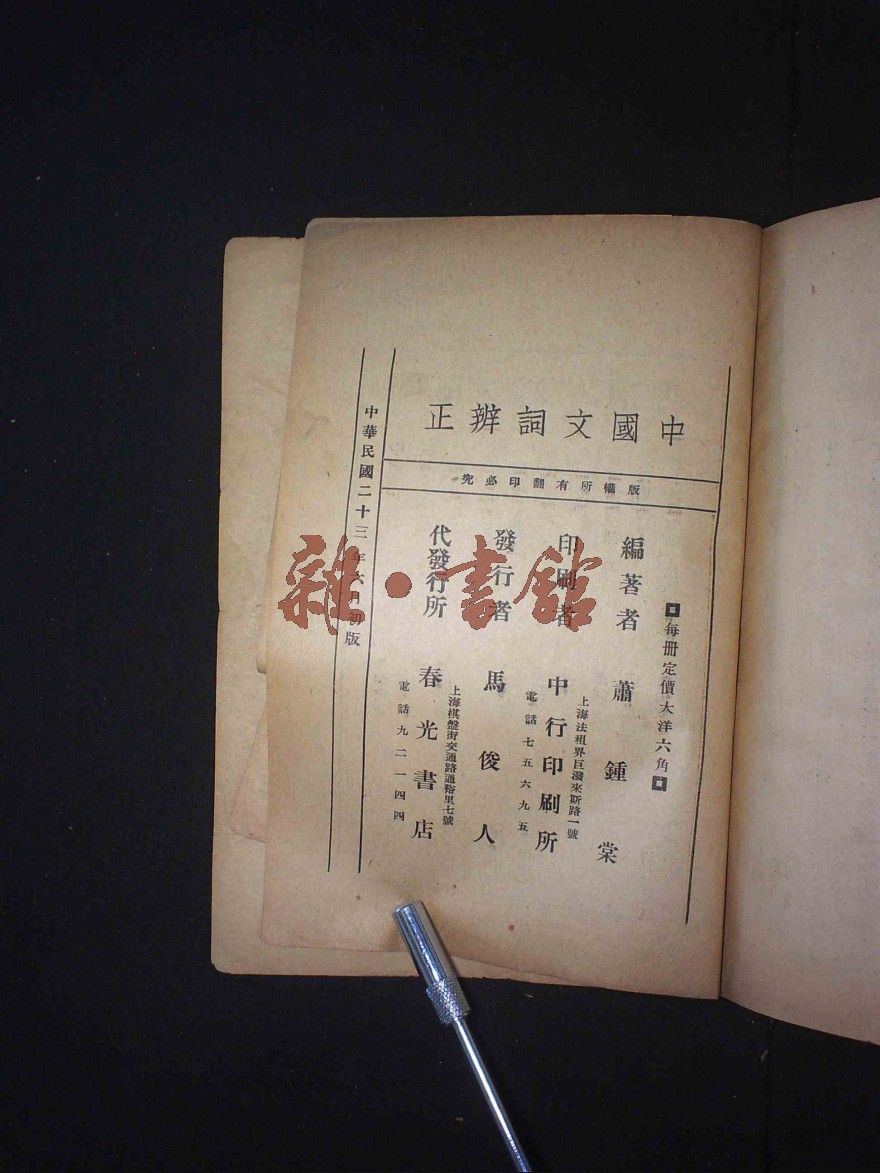 中國文詞辨正
版權所有翻印必究
每冊定價大洋六角
編著者　蕭鍾棠
印刷者　中行印刷所
上海法租界巨潑來斯路一號
電話七五六九五
發行者　馬俊人
代發行所　春光書店
上海棋盤街交通路通裕里七號
電話九二一四四
中華民國二十三年六月初版
雜·書館